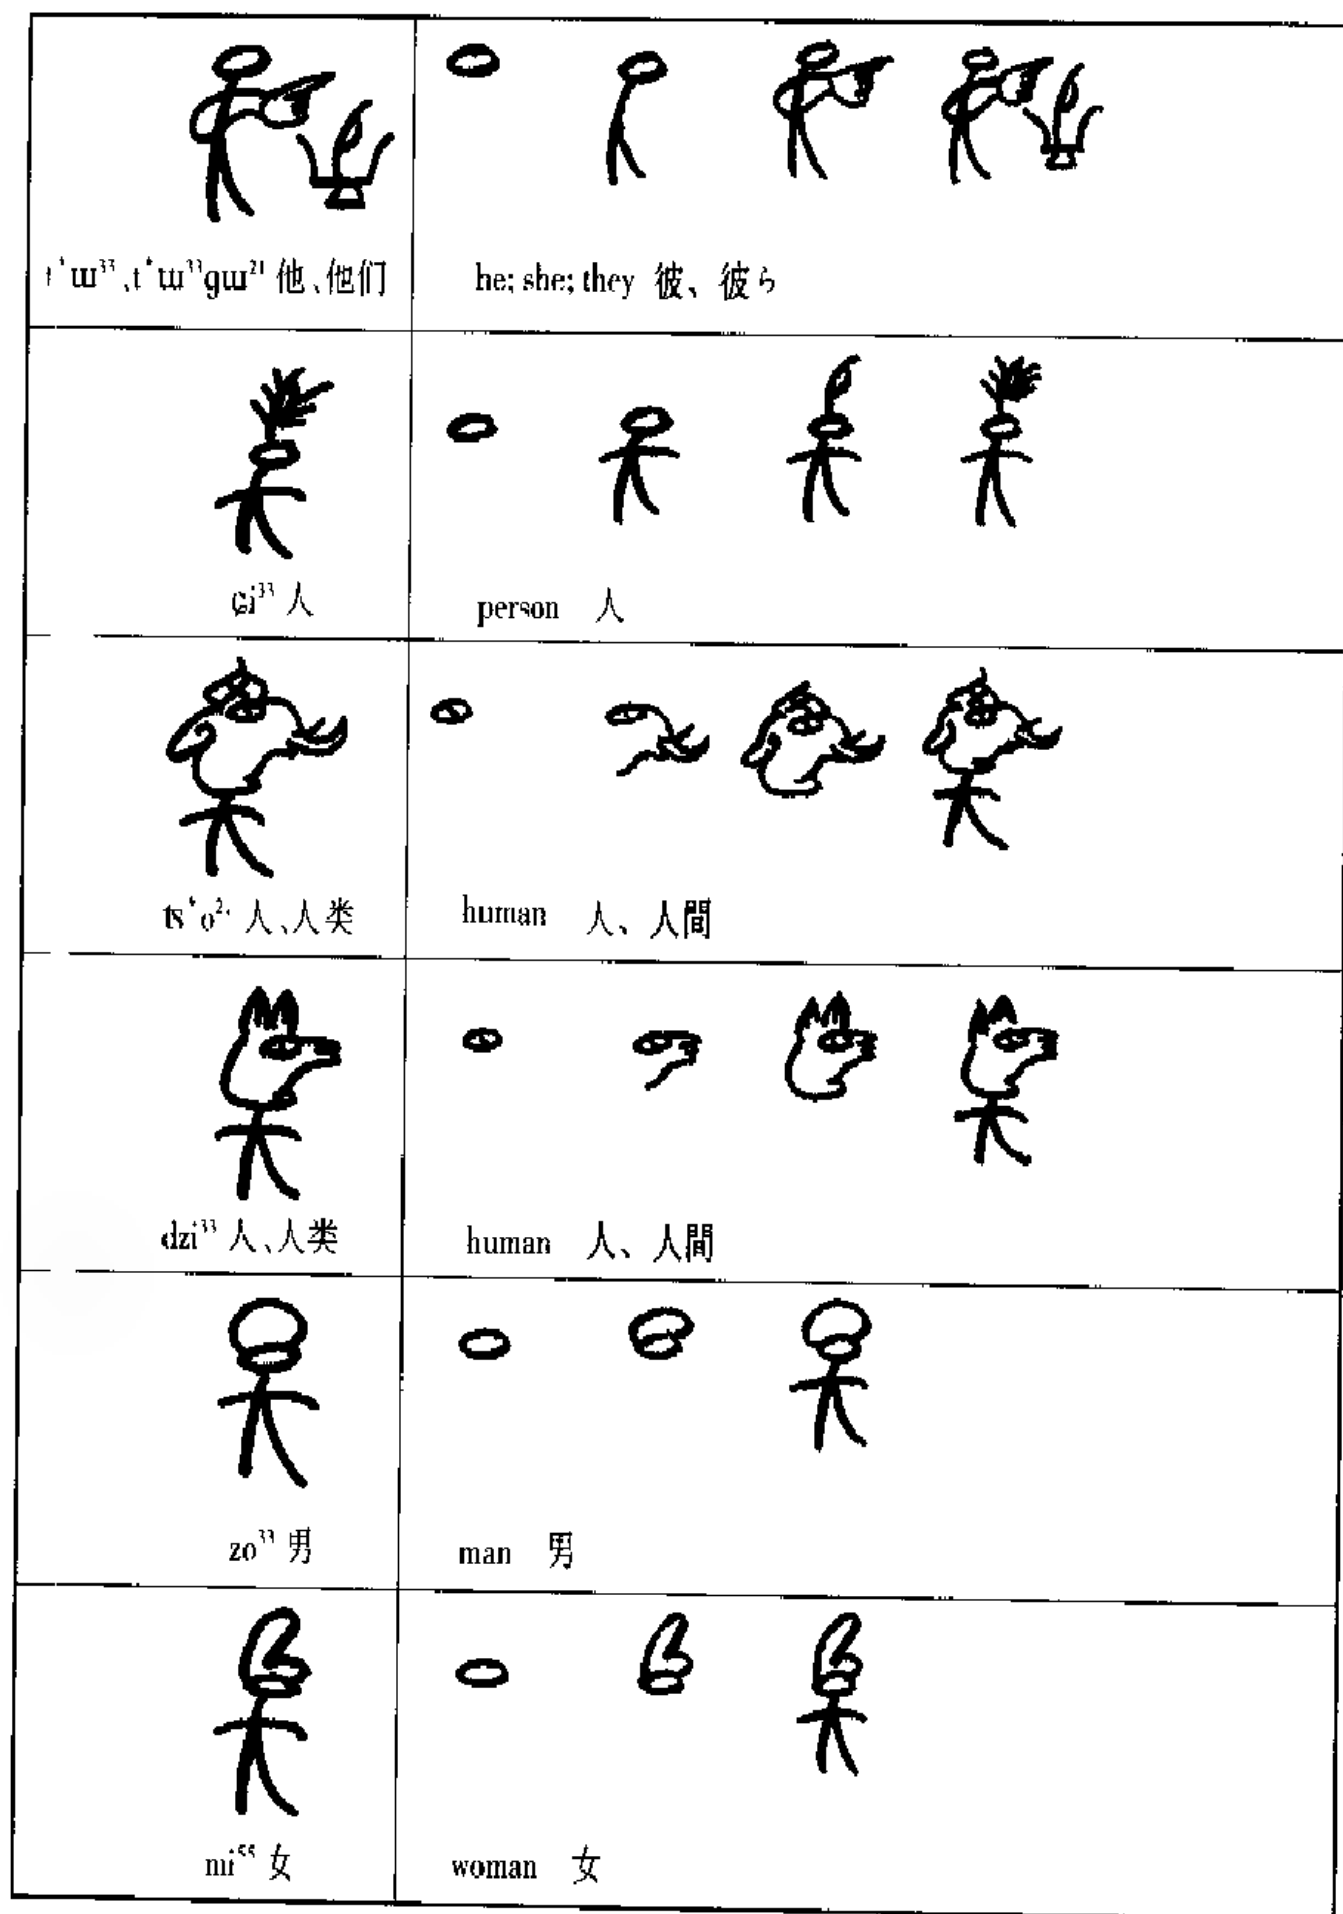 t‘ɯ³³、t‘ɯ³³gɯ²¹ 他、他们
he; she; they 彼、彼ら
ɕi³³ 人
person 人
ts‘o²¹ 人、人类
human 人、人間
dzi³³ 人、人类
human 人、人間
zo³³ 男
man 男
mi⁵⁵ 女
woman 女